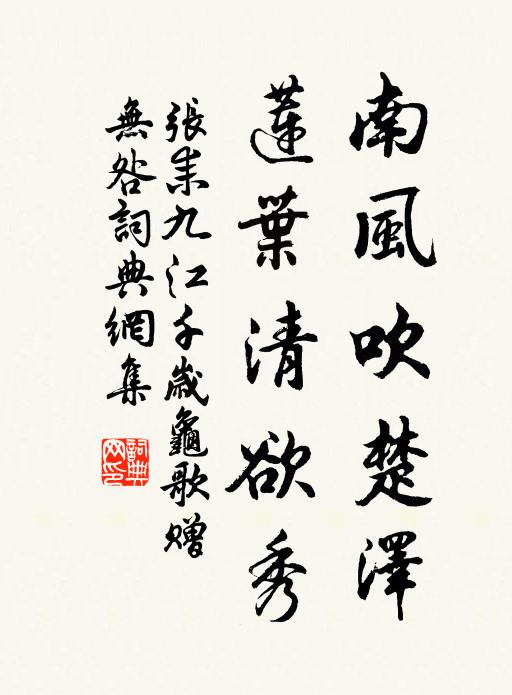 南風吹楚澤
蓮葉清欲秀
張耒九江千歲龜歌贈
無咎詞典網集
詞典網印